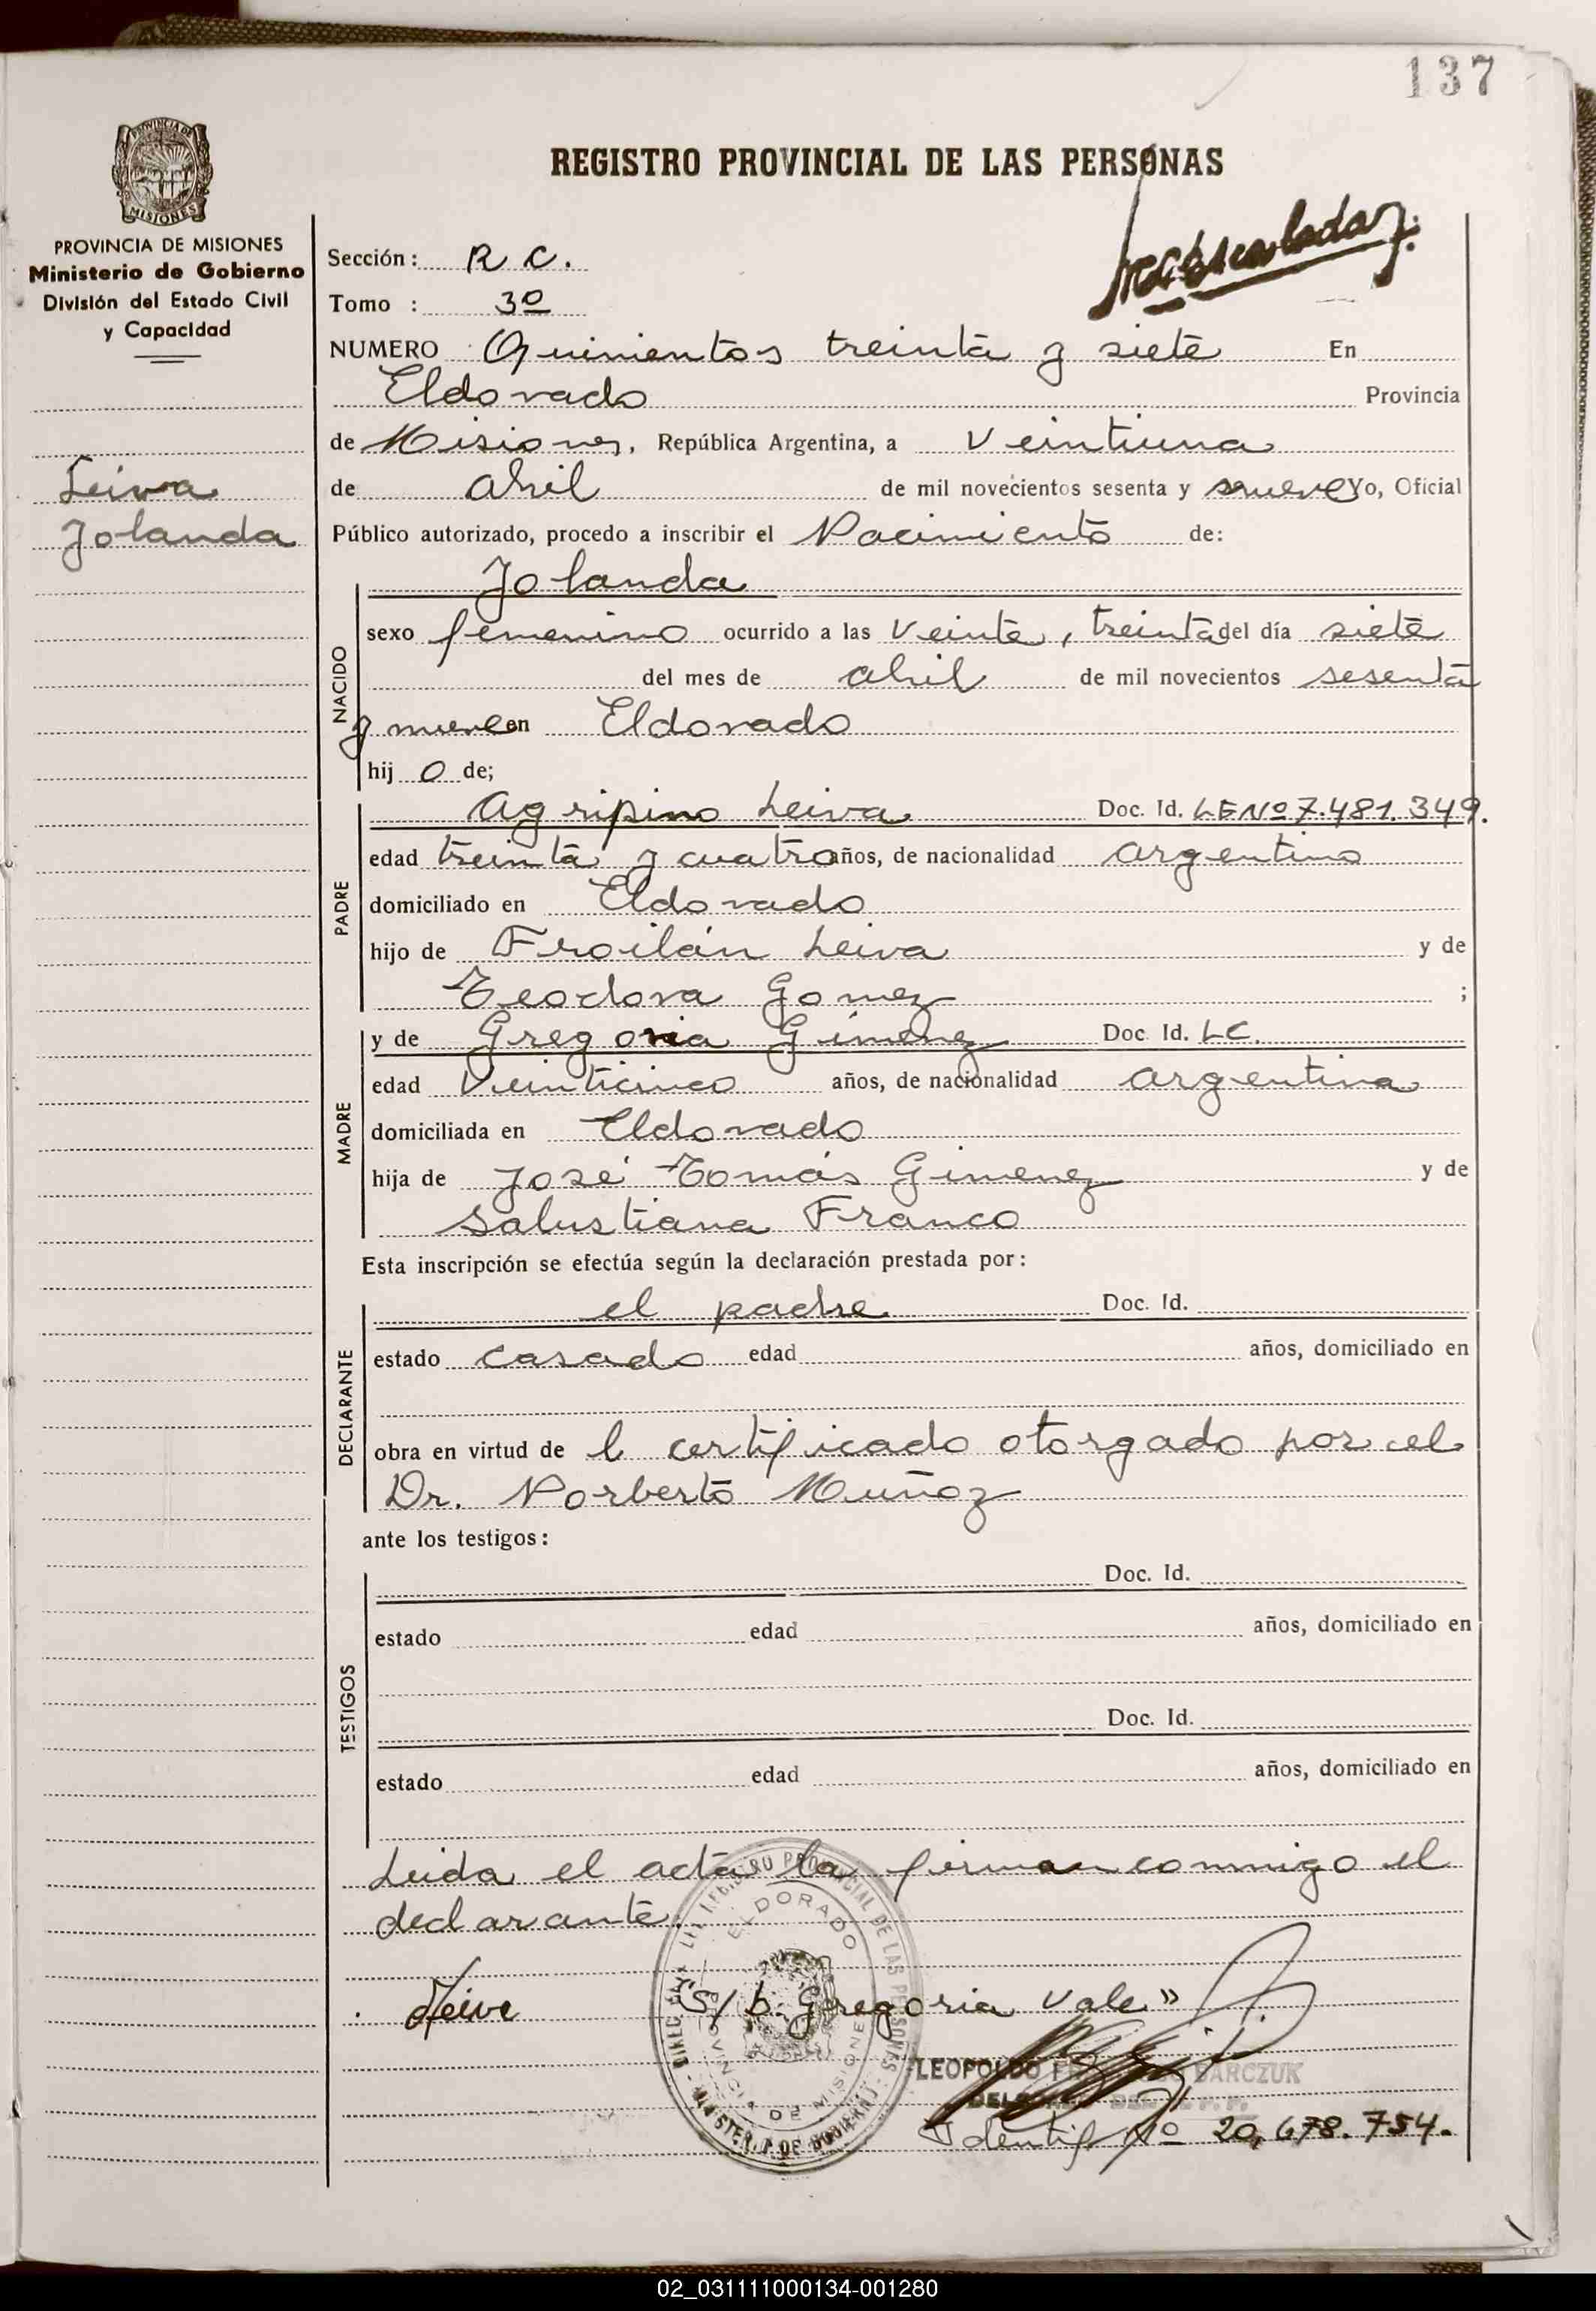 137
PROVINCIA DE MISIONES
REGISTRO PROVINCIAL DE LAS PERSONAS
PROVINCIA DE MISIONES
Ministerio de Gobierno
División del Estado Civil
y Capacidad
Leiva
Jolanda
Sección: R C.
Tomo : 3º
NUMERO Quinientos treinta y siete En
Eldorado Provincia
de Misiones, República Argentina, a veintiuno
de abril de mil novecientos sesenta y nueve Yo, Oficial
Público autorizado, procedo a inscribir el Nacimiento de:
Jolanda
NACIDO
sexo femenino ocurrido a las veinte, treinta del día siete
del mes de abril de mil novecientos sesenta
y nueve en Eldorado
hij o de;
PADRE
Agripino Leiva Doc. Id. LE Nº 7.481.349.
edad treinta y cuatro años, de nacionalidad argentino
domiciliado en Eldorado
hijo de Froilán Leiva y de
Teodora Gomez ;
MADRE
y de Gregoria Gimenez Doc. Id. LC.
edad veinticinco años, de nacionalidad argentina
domiciliada en Eldorado
hija de José Tomás Gimenez y de
Salustiana Franco
Esta inscripción se efectúa según la declaración prestada por:
DECLARANTE
el padre Doc. Id.
estado casado edad años, domiciliado en
obra en virtud de l certificado otorgado por el
Dr. Norberto Muñoz
ante los testigos:
TESTIGOS
Doc. Id.
estado edad años, domiciliado en
Doc. Id.
estado edad años, domiciliado en
Leida el acta la firman conmigo el
declarante.
REGISTRO PROVINCIAL DE LAS PERSONAS
ELDORADO
PROVINCIA DE MISIONES
MINISTERIO DE GOBIERNO
Leiva S/b: Gregoria Vale"
LEOPOLDO BARCZUK
Identif Nº 20,678.754.
02_031111000134-001280